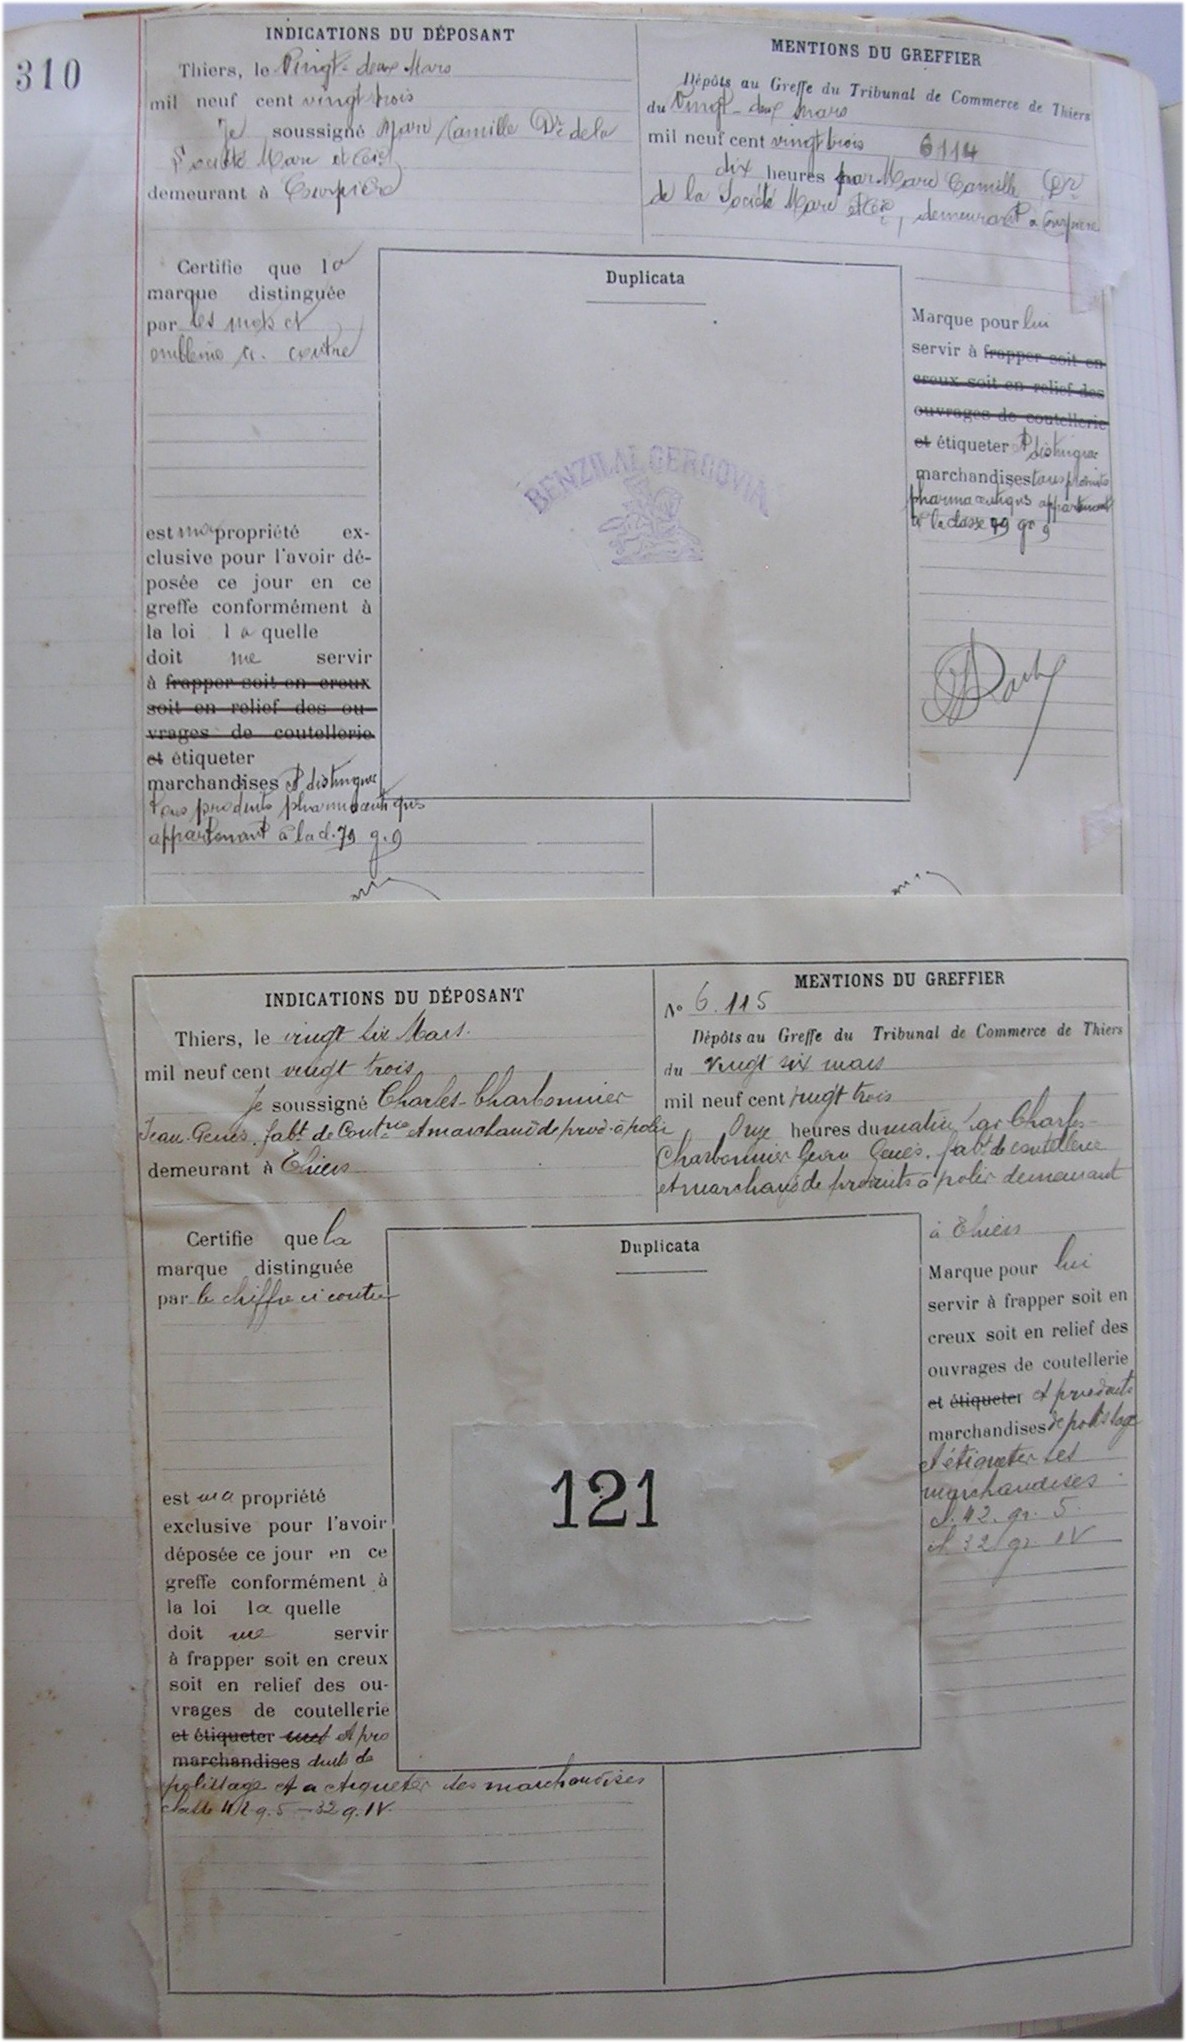 310
INDICATIONS DU DÉPOSANT
Thiers, le Vingt-deux Mars
mil neuf cent vingt trois
Je soussigné Marc Camille Dr de la
Société Marc et Cie
demeurant à Courpière
MENTIONS DU GREFFIER
Dépôts au Greffe du Tribunal de Commerce de Thiers
du Vingt-deux mars
mil neuf cent vingt trois 6114
dix heures par Marc Camille, Dr
de la Société Marc et Cie, demeurant à Courpière
Certifie que la
marque distinguée
par les mots et
emblème ci-contre
est ma propriété ex-
clusive pour l'avoir dé-
posée ce jour en ce
greffe conformément à
la loi la quelle
doit me servir
à frapper soit en creux
soit en relief des ou-
vrages de coutellerie
et étiqueter
marchandises et distinguer
tous produits pharmaceutiques
appartenant à la cl. 79 g. 9
Duplicata
BENZILAI GERGOVIA
Marque pour lui
servir à frapper soit en
creux soit en relief des
ouvrages de coutellerie
et étiqueter et distinguer
marchandises tous produits
pharmaceutiques appartenant
à la classe 79 gr 9
INDICATIONS DU DÉPOSANT
Thiers, le vingt six Mars.
mil neuf cent vingt trois
Je soussigné Charles-Charbonnier
Jean-Genès, fabt de Coutrie et marchand de prod. à polir
demeurant à Thiers
MENTIONS DU GREFFIER
No 6.115
Dépôts au Greffe du Tribunal de Commerce de Thiers
du vingt six mars
mil neuf cent vingt trois
Onze heures du matin par Charles-
Charbonnier Jean Genès, fabt de coutellerie
et marchand de produits à polir demeurant
à Thiers
Certifie que la
marque distinguée
par le chiffre ci contre
est ma propriété
exclusive pour l'avoir
déposée ce jour en ce
greffe conformément à
la loi la quelle
doit me servir
à frapper soit en creux
soit en relief des ou-
vrages de coutellerie
et étiqueter et pro
marchandises duits de
polissage et à étiqueter ses marchandises
classe 42 g. 5 - 32 g. IV.
Duplicata
121
Marque pour lui
servir à frapper soit en
creux soit en relief des
ouvrages de coutellerie
et étiqueter et produits
marchandises de polissage
et étiqueter ses
marchandises
cl. 42. gr. 5.
cl. 32 gr. IV